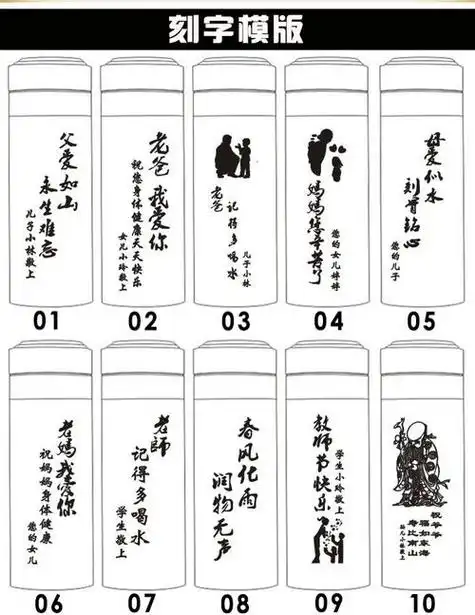 刻字模版
父爱如山
永生难忘
儿子小林敬上
01
老爸 我爱你
祝您身体健康天天快乐
女儿小玲敬上
02
老爸
记得多喝水
儿子小林
03
妈妈您辛苦了
您的女儿婷婷
04
母爱似水
刻骨铭心
您的儿子
05
老妈我爱你
祝妈妈身体健康
您的女儿
06
老师
记得多喝水
学生敬上
07
春风化雨
润物无声
08
学生小林敬上
教师节快乐
09
祝爷爷
福如东海
寿比南山
孙儿小林敬上
10